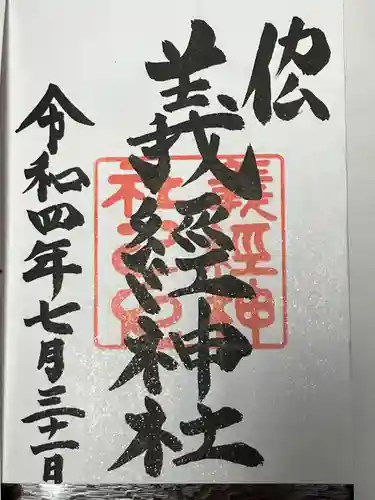 仫
義経神社
義経神社之印
令和四年七月三十一日